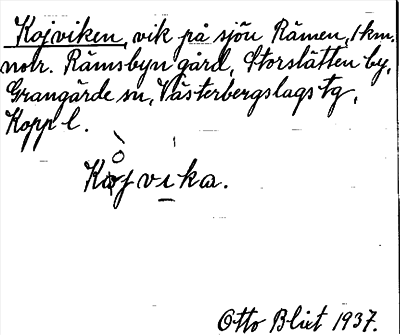 Kojviken, vik på sjön Rämen, 1 km.
notr. Rämsbyn gård, Storslätten by,
Grangärde sn, Västerbergslags tg,
Kopp l.
Kojvika.
Otto Blixt 1937.